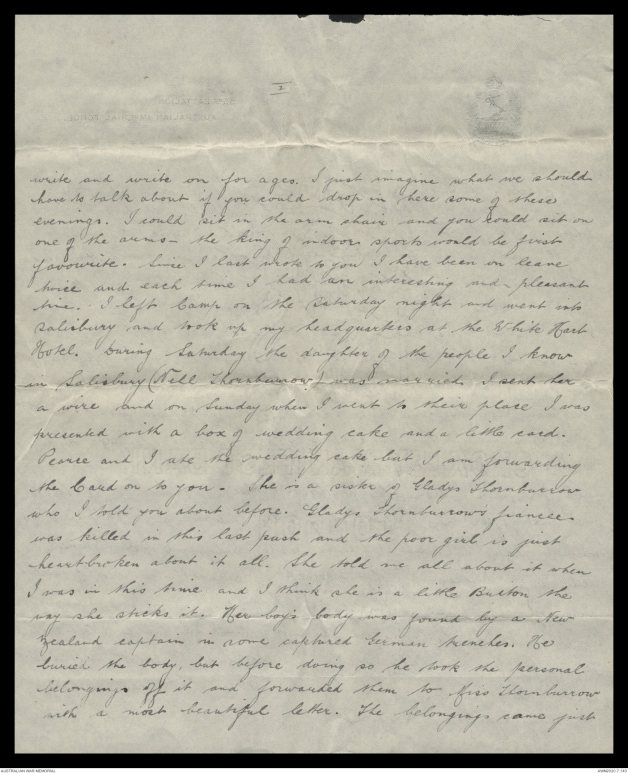 2
write and write on for ages. I just imagine what we should
have to talk about if you could drop in here some of these
evenings. I could sit in the arm chair and you could sit on
one of the arms – the king of indoor sports would be first
favourite. Since I last wrote to you I have been on leave
twice and each time I had an interesting and pleasant
time. I left Camp on the Saturday night and went into
Salisbury and took up my headquarters at the White Hart
Hotel. During Saturday the daughter of the people I know
in Salisbury (Nell Thornburrow) was married. I sent her
a wire and on Sunday when I went to their place I was
presented with a box of wedding cake and a little card.
Pearce and I ate the wedding cake but I am forwarding
the Card on to you – She is a sister of Gladys Thornburrow
who I told you about before. Gladys Thornburrows fiancee
was killed in this last push and the poor girl is just
heartbroken about it all. She told me all about it when
I was in this time and I think she is a little Briton the
way she sticks it. Her boy's body was found by a New
Zealand captain in some captured German trenches. He
buried the body, but before doing so he took the personal
belongings off it and forwarded them to Miss Thornburrow
with a most beautiful letter. The belongings came just
AUSTRALIAN WAR MEMORIAL